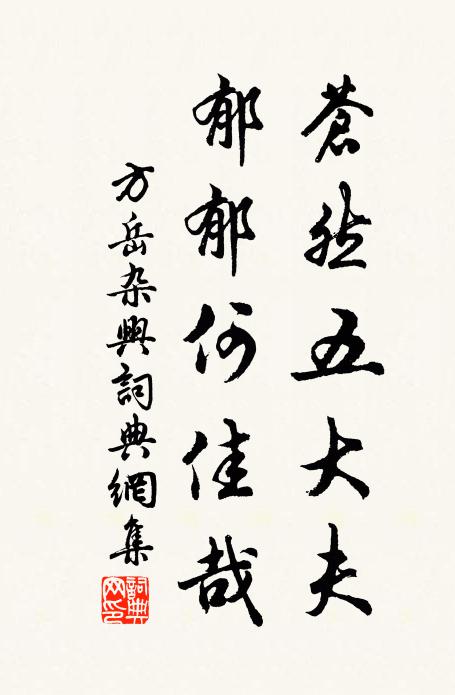 蒼然五大夫
郁郁何佳哉
方岳杂興詞典網集
詞典網印